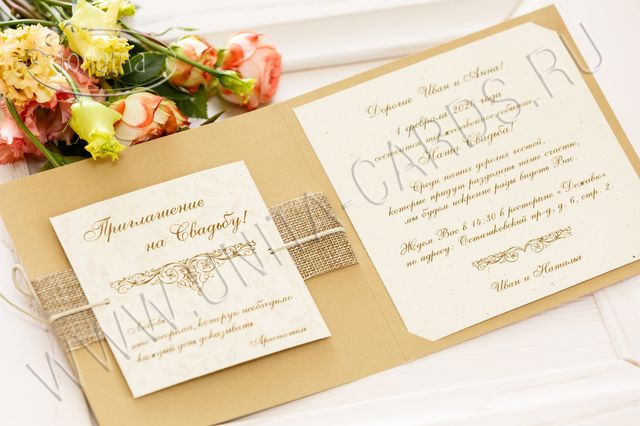 Приглашение
на Свадьбу!
Любовь -
это теорема, которую необходимо
каждый день доказывать
Аристотель
Дорогие Иван и Анна!
1 февраля 2021 года
состоится торжественное событие,
Наша Свадьба!
Среди наших дорогих гостей,
которые придут разделить наше счастье,
мы будем искренне рады видеть Вас.
Ждем Вас в 14:30 в ресторане "Дежавю"
по адресу: Осташковский пр-д, д. 6, стр. 2.
Иван и Наталья
WWW.UNITA-CARDS.RU